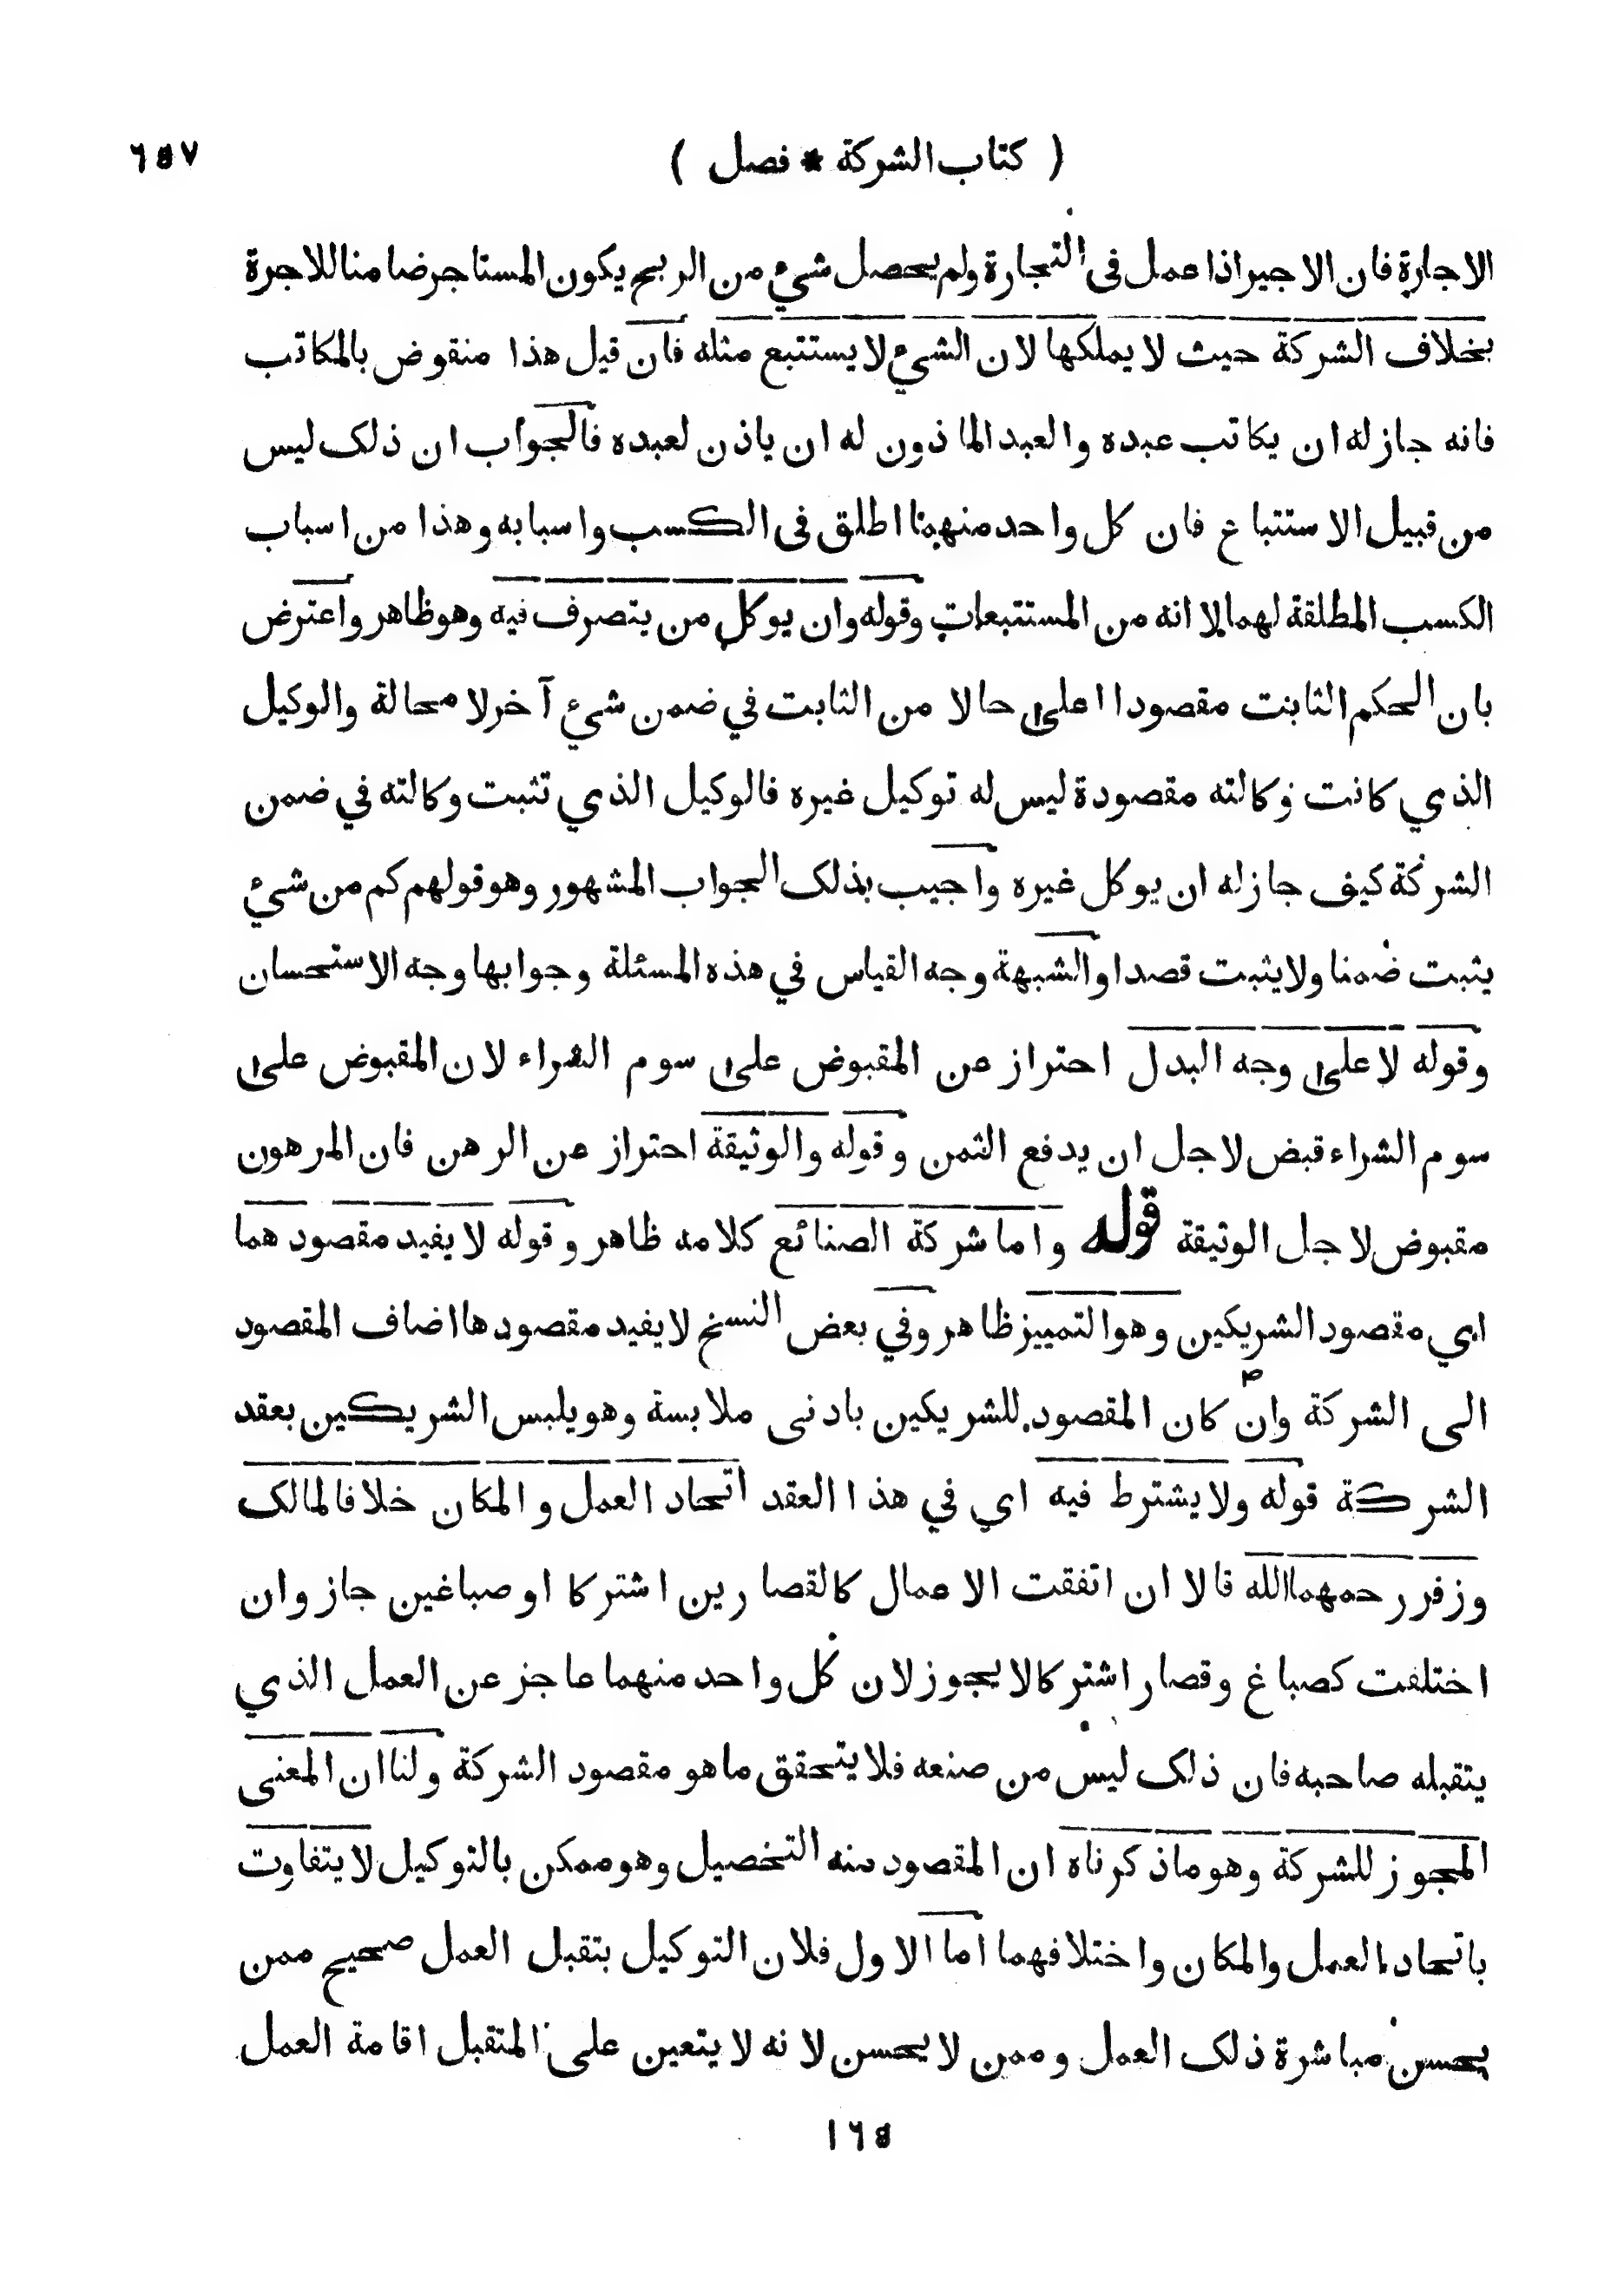 ( كتاب الشركة * فصل ) ٦٥٧
الاجارة فان الاجير اذا عمل فى التجارة ولم يحصل شيء من الربح يكون المستاجر ضامنا للاجرة
بخلاف الشركة حيث لا يملكها لان الشيء لا يستتبع مثله فان قيل هذا منقوض بالمكاتب
فانه جاز له ان يكاتب عبده والعبد الماذون له ان ياذن لعبده فالجواب ان ذلك ليس
من قبيل الاستتباع فان كل واحد منهما اطلق فى الكسب واسبابه وهذا من اسباب
الكسب المطلقة لهما لا انه من المستتبعات وقوله وان يوكل من يتصرف فيه وهو ظاهر واعترض
بان الحكم الثابت مقصودا اعلى حالا من الثابت في ضمن شيء آخر لا محالة والوكيل
الذي كانت وكالته مقصودة ليس له توكيل غيره فالوكيل الذي تثبت وكالته في ضمن
الشركة كيف جاز له ان يوكل غيره واجيب بذلك الجواب المشهور وهو قولهم كم من شيء
يثبت ضمنا ولا يثبت قصدا والشبهة وجه القياس في هذه المسئلة وجوابها وجه الاستحسان
وقوله لا على وجه البدل احتراز عن المقبوض على سوم الشراء لان المقبوض على
سوم الشراء قبض لاجل ان يدفع الثمن وقوله والوثيقة احتراز عن الرهن فان المرهون
مقبوض لاجل الوثيقة قوله واما شركة الصنائع كلامه ظاهر وقوله لا يفيد مقصودهما
اي مقصود الشريكين وهو التمييز ظاهر وفي بعض النسخ لا يفيد مقصودها اضاف المقصود
الى الشركة وان كان المقصود للشريكين بادنى ملابسة وهو يلبس الشريكين بعقد
الشركة قوله ولا يشترط فيه اي في هذا العقد اتحاد العمل والمكان خلافا لمالك
وزفر رحمهما الله قالا ان اتفقت الاعمال كالقصارين اشتركا او صباغين جاز وان
اختلفت كصباغ وقصار اشتركا لا يجوز لان كل واحد منهما عاجز عن العمل الذي
يتقبله صاحبه فان ذلك ليس من صنعه فلا يتحقق ما هو مقصود الشركة ولنا ان المعنى
المجوز للشركة وهو ما ذكرناه ان المقصود منه التخصيل وهو ممكن بالتوكيل لا يتفاوت
باتحاد العمل والمكان واختلافهما اما الاول فلان التوكيل بتقبل العمل صحيح ممن
يحسن مباشرة ذلك العمل وممن لا يحسن لانه لا يتعين على المتقبل اقامة العمل
١٦٥